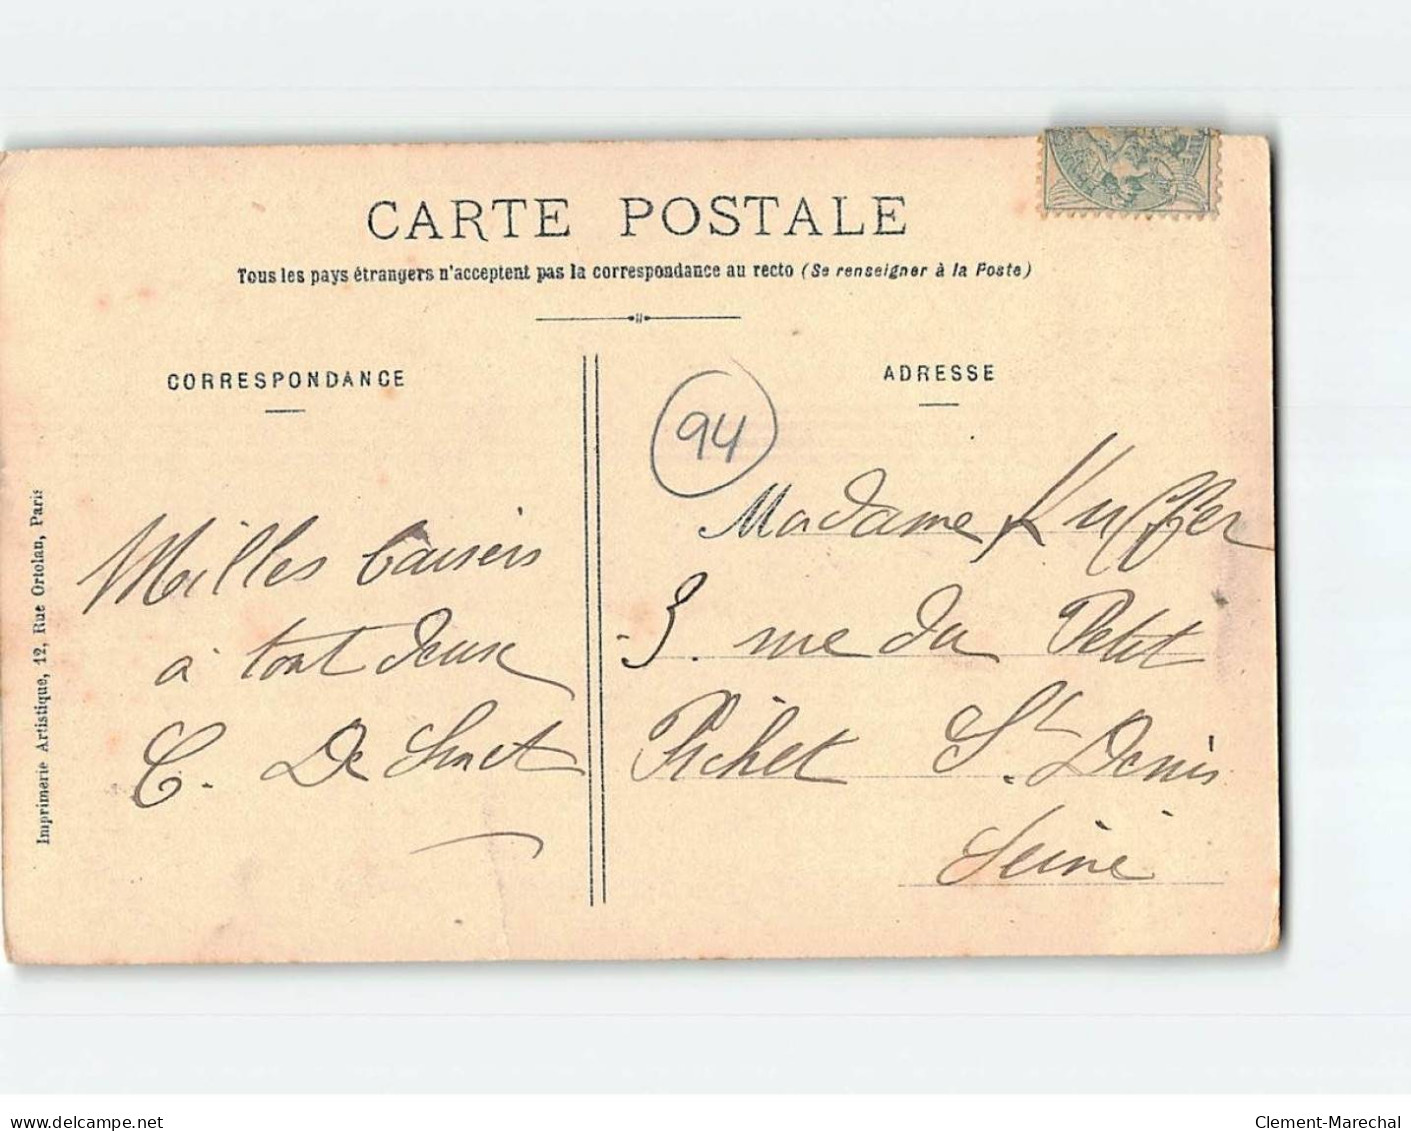 CARTE POSTALE
Tous les pays étrangers n'acceptent pas la correspondance au recto (Se renseigner à la Poste)
CORRESPONDANCE
Milles baisers
à tout deux
C. De
Imprimerie Artistique, 12, Rue Ortolan, Paris
ADRESSE
94
Madame Kuffer
3. rue du Petit
Pichet St. Denis
Seine
delcampe.net
Clement-Marechal